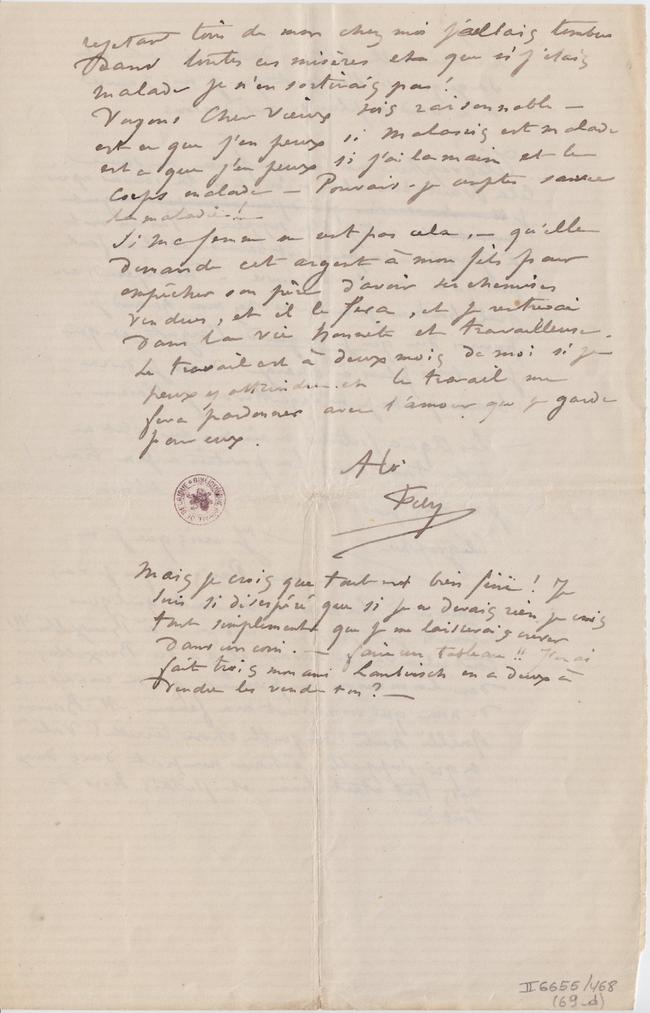 rejetant loin de mon chez moi j'allais tomber
Dans toutes ces misères et que si j'étais
malade je n'en sortirais pas!
Voyons Cher Vieux sois raisonnable –
est ce que j'en peux si est malade
est ce que j'en peux si j'ai la main et le
corps malade – Pouvais-je compter sans
la maladie! –
Si ma femme ne cela, – qu'elle
demande cet argent à mon fils pour
empêcher son père d'avoir ses chemises
vendues, et il le fera, et je rentrerai
Dans la vie honnête et travailleuse.
Le travail est à deux mois de moi si je
peux y atteindre et le travail me
fera pardonner avec l'amour que je garde
pour eux.
A toi
Fély
Mais je crois que tout est bien fini! Je
suis si désespéré que si je ne devais rien je crois
tout simplement que je me laisserais crever
Dans un coin. – faire un tableau!! J'en ai
fait trois mon ami en a deux à
vendre les vend-on? –
II 6655/468
(69_d)